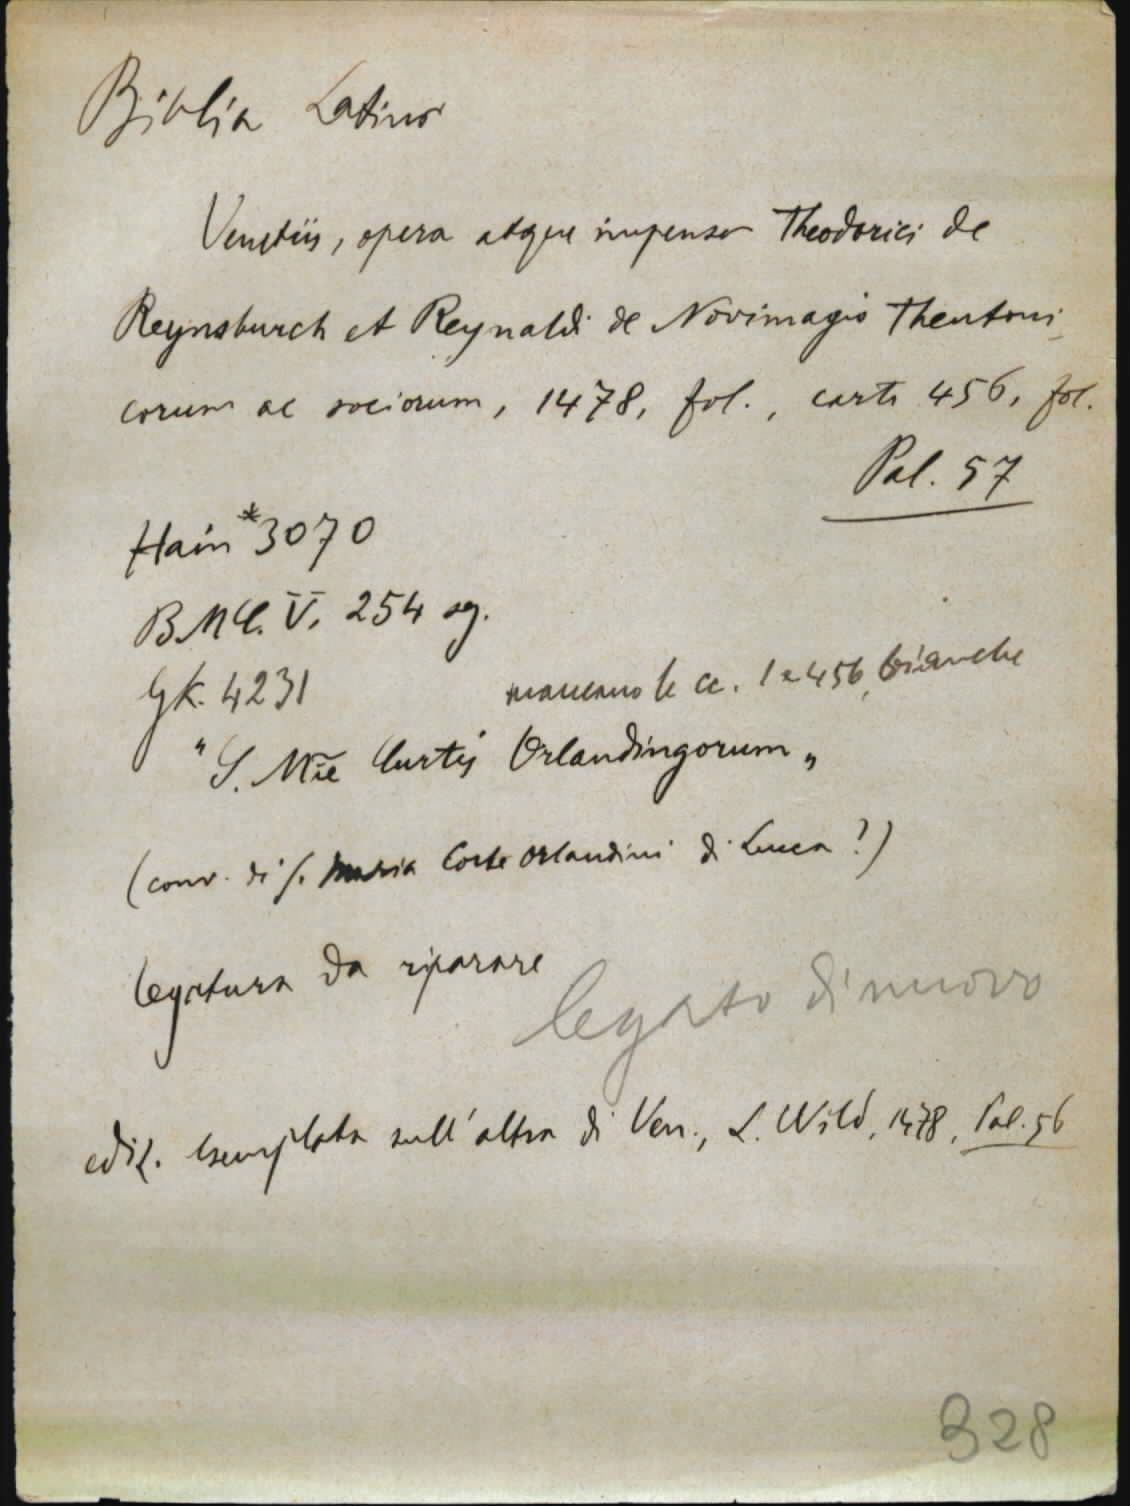 Biblia Latina
Venetiis, opera atque impensa Theodorici de
Reynsburch et Reynaldi de Novimagio Theutoni
corum ac sociorum, 1478, fol., carte 456, fol.
Pal. 57
Hain *3070
BMC. V, 254 sg.
GK. 4231
mancano le cc. 1 e 456, bianche
"S. Mie Curtis Orlandingorum"
(conv. di S. Maria Corte Orlandini di Lucca?)
legatura da riparare
legato di nuovo
ediz. esemplata sull'altra di Ven., L. Wild, 1478, Pal. 56
328